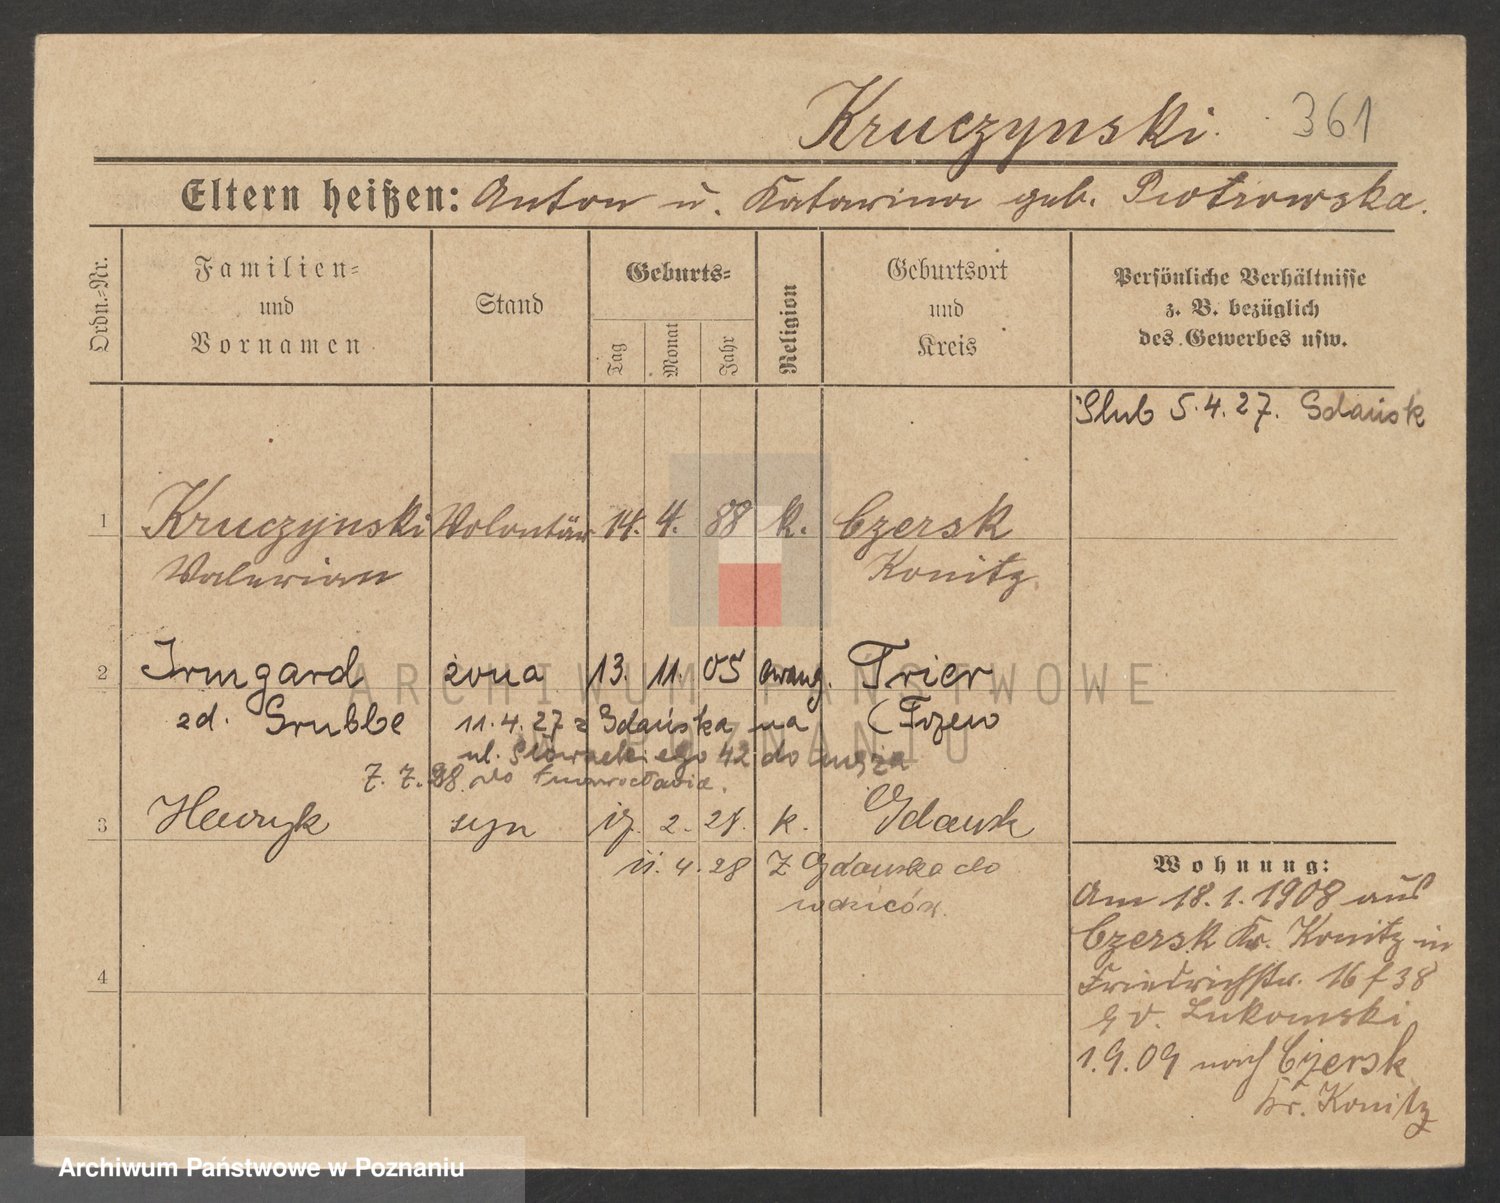 Kruczynski. 361
Eltern heißen: Anton u. Katarina geb. Piotrowska.
Ordn.-Nr.
Familien-
und
Vornamen
Stand
Geburts-
Tag
Monat
Jahr
Religion
Geburtsort
und
Kreis
Persönliche Verhältnisse
z. B. bezüglich
des Gewerbes usw.
Slub 5.4.27. Gdańsk
1 Kruczynski Volontär 14. 4. 88 k. Czersk
Valerian Konitz.
2 Irmgard żona 13. 11. 05 ewang. Trier
zd. Grubbe 11.4.27 z Gdańska na (Tczew
ul. Słowackiego 42 do męża
7. 7. 28. do Inowrocławia.
3 Henryk syn 2. 28. k. Gdansk
11. 4. 28 Z Gdanska do
rodziców.
4
Wohnung:
Am 18.1.1908 aus
Czersk Kr. Konitz in
Friedrichstr. 16 f 38
v. Lukomski
1.9.09 nach Czersk
Kr. Konitz
ARCHIWUM PAŃSTWOWE
W POZNANIU
Archiwum Państwowe w Poznaniu